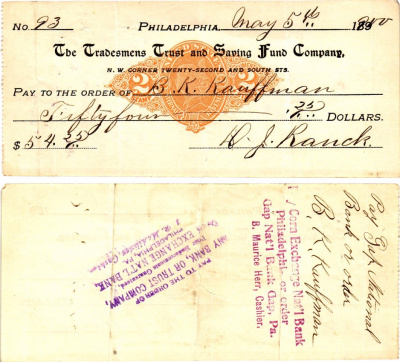 No. 93 Philadelphia, May 5th 189
The Tradesmens Trust and Saving Fund Company,
N. W. CORNER TWENTY-SECOND AND SOUTH STS.
PAY TO THE ORDER OF B. K. Kauffman
2 2
Fifty four 25 DOLLARS.
$ 54.25 D. J. Ranck
Pay Gap National
Bank or order
B K Kauffman
Pay Corn Exchange Nat'l Bank
Philadelphia or order
Gap Nat'l Bank Gap, Pa.
B. Maurice Herr, Cashier.
PAY TO THE ORDER OF
ANY BANK OR TRUST COMPANY,
CORN EXCHANGE NAT'L BANK
PHILADELPHIA, PA.
Cashier